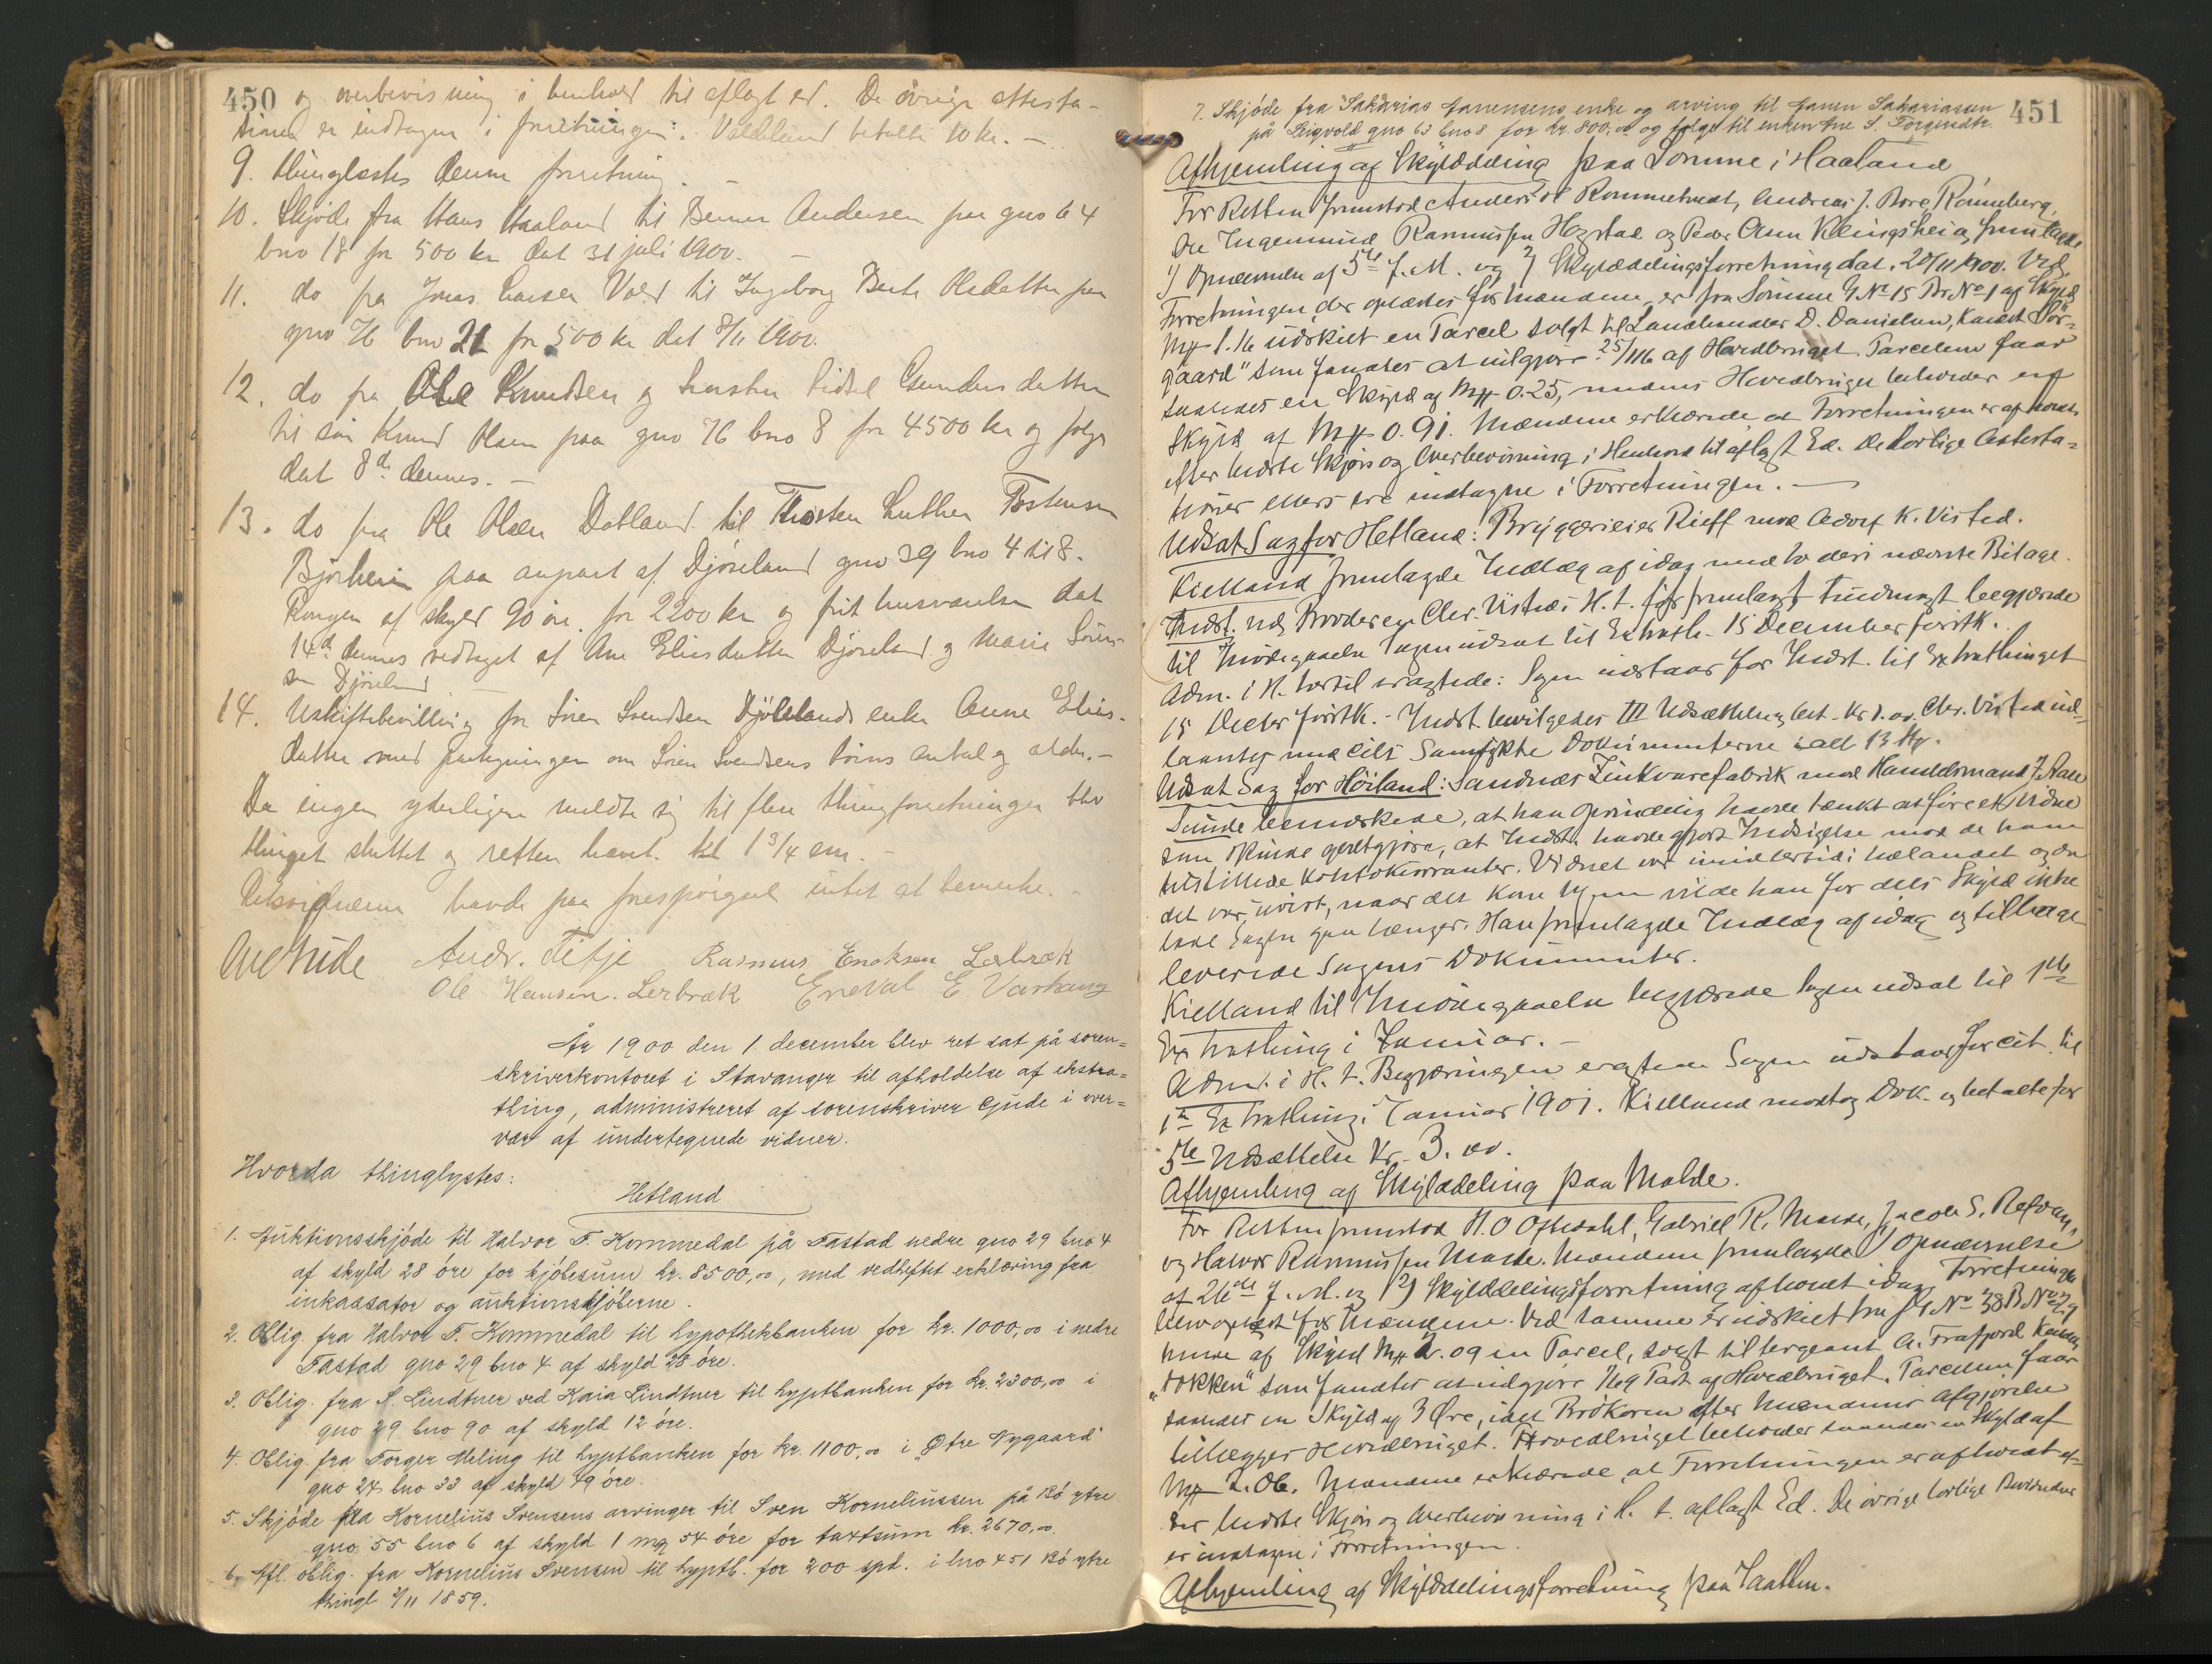 450 og overbevisning i henhold til aflagt ed. De övrige attesta-
tioner er indtagne i forretningen. Valdeland betalte 10 kr. —
9. Thinglæstes denne forretning. —
10. Skjöde fra Hans Haaland til Berner Andersen paa gno 64
bno 18 for 500 kr dat 31 juli 1900. —
11. do fra Jonas Larsen Vold til Ingeborg Berte Olsdatter paa
gno 76 bno 21 for 500 kr dat 8/11 1900.
12. do fra Ole Knudsen og hustru Sidsel Gundersdatter
til sön Knud Olsen paa gno 76 bno 8 for 4500 kr og folge
dat 8de dennes. —
13. do fra Ole Olsen Datland til Thorsten Luther Tostensen
Björheim paa anpart af Djöseland gno 39 bno 4 til 8.
Kongen af skyld 90 öre for 2200 kr og frit husværelse dat
14de dennes vedtaget af Ane Eliesdatter Djöseland og Marie Sören-
sen Djöseland
14. Uskiftebevilling for Sören Svendsen Djöselands enke Anne Elies-
datter med paategninger om Sören Svendsens börns antal og alder. —
Da ingen yderligere meldte sig til flere thingforretninger blev
thinget sluttet og retten hævet. kl 1 3/4 em. —
havde paa forespörgsel intet at bemerke. —
Andr. Titje Rasmus Eriksen Lerbræk
Ole Hansen. Lerbræk Enevald E Varhaug
År 1900 den 1 december blev ret sat på soren=
skriverkontoret i Stavanger til afholdelse af ekstra=
thing, administreret af sorenskriver Gjude i over=
vær af undertegnede vidner.
Hvorda thinglystes:
Hetland
1. Auktionsskjöde til Halvor T. Kommedal på Tastad nedre gno 29 bno 4
af skyld 28 öre for kjöbesum kr. 8500,00, med vedheftet erklæring fra
inkassator og auktionskjöberne.
2. Oblig. fra Halvor T. Kommedal til hypothekbanken for kr. 1000,00 i nedre
Tastad gno 29 bno 4 af skyld 28 öre.
3. Oblig. fra S. Lindtner ved Kaia Lindtner til hyptbanken for kr. 2300,00 i
gno 29 bno 90 af skyld 12 öre.
4. Oblig. fra Torger Meling til hyptbanken for kr. 1100,00 i "Östre Nygaard"
gno 24 bno 33 af skyld 49 öre.
5. Skjöde fra Kornelius Svensens arvinger til Sven Korneliussen på Bö ytre
gno 55 bno 6 af skyld 1 mq 54 öre for taxtsum kr. 2670,00.
6. Afl. oblig. fra Kornelius Svensen til hyptb. for 200 spd. i lno 451 Bö ytre
thingl 2/11 1859.
451
7. Skjöde fra Sakarias Hanensens enke og arving til Hanen Sakariassen
på Rigvold gno 63 bno 8 for kr. 800,00 og folge til enken Ane S. Torgersdtr
Afhjemling af Skylddeling paa Sömme i Haaland
For Retten fremstod Anders Ol Rommetvedt, Andreas J. Bore, Rönneberg,
Ole Ingemund Rasmussen Hogstad og Peder Olsen Klingsheia, fremlagde
1) Opnævnelse af 5te f. M. og 2) Skylddelingsforretning dat. 20/11 1900. Ved
Forretningen der oplæstes for Mændene, er fra Sömme G No 15 Br. No 1 af Skyld
M# 1.16 udskilt en Parcel solgt til Landhandler D. Danielsen, kaldet "Sör=
gaard" som fandtes at udgjöre 25/116 af Hovedbruget. Parcelen faar
saaledes en Skyld af M# 0.25, medens Hovedbruget beholder en
Skyld af M# 0.91. Mændene erklærede at Forretningen er afholdt
efter bedste Skjön og Overbevisning i Henhold til aflagt Ed. De lovlige Attesta=
tioner ellers ere indtagne i Forretningen. —
Udsat Sag for Hetland: Bryggerieier Rieff mod Adolf K. Visted.
Kielland fremlagde Indlæg af idag med to deri nævnte Bilage.
Indst. ved Broderen Chr. Visted i H. t. för fremlagt Fuldmagt begjærede
til Imödegaaelse Sagen udsat til Extrath. 15 December förstk.
Adm. i H. hertil eragtede: Sagen udstaar for Indst. til Extrathinget
15 Decber förstk. - Indst. bevilgedes III Udsættelse, bet. Kr 1.00. Chr. Visted ud=
laantes med Cits Samtykke Dokumenterne i alt 13 St.
Udsat Sag for Höiland: Sandnæs Zinkvarefabrik mod Handelsmand J. Aase
Sunde bemærkede, at han oprindelig havde tænkt at före et Vidne
som skulde godtgjöre, at Indst. havde gjort Indsigelse mod de ham
tilstillede Kontokuranter. Vidnet var imidlertid i Udlandet og da
det var uvist, naar det kom hjem vilde han for dets Skyld ikke
lade Sagen gaa længer. Han fremlagde Indlæg af idag og tilbage
leverede Sagens Dokumenter.
Kielland til Imödegaaelse begjærede Sagen udsat til 1ste
Extrathing i Januar. —
Adm. i H. t. Begjæringen eragtede Sagen udstaar for cit. til
1te Extrathing i Januar 1901. Kielland modtog Dok. og betalte for
5te Udsættelse Kr. 3.00.
Afhjemling af Skylddeling paa Malde.
For Retten fremstod H. O Oftedahl, Gabriel K. Malde, Jacob S. Refvem,
og Halvor Rasmussen Malde. Mændene fremlagde 1) Opnævnelse
af 26de f. M. og 2) Skylddelingsforretning afholdt idag. Forretningen
blev oplæst for Mændene. Ved samme er udskilt fra G No 38 B No 2, 9
af Skyld M# 2.09 en Parcel, solgt til Sergeant A. Frafjord kaldes
"Lökken" som fandtes at udgjöre 1/69 Part af Hovedbruget. Parcelen faar
saaledes en Skyld af 3 Öre, idet Bröken efter Mændenes Afgjörelse
tillægges Hovedbruget. Hovedbruget beholder saaledes en Skyld af
M# 2.06. Mændene erklærede, at Forretningen er afholdt ef=
ter bedste Skjön og Overbevisning i H. t. aflagt Ed. De övrige lovlige
er indtagne i Forretningen.
Afhjemling af Skylddelingsforretning paa Taathen.